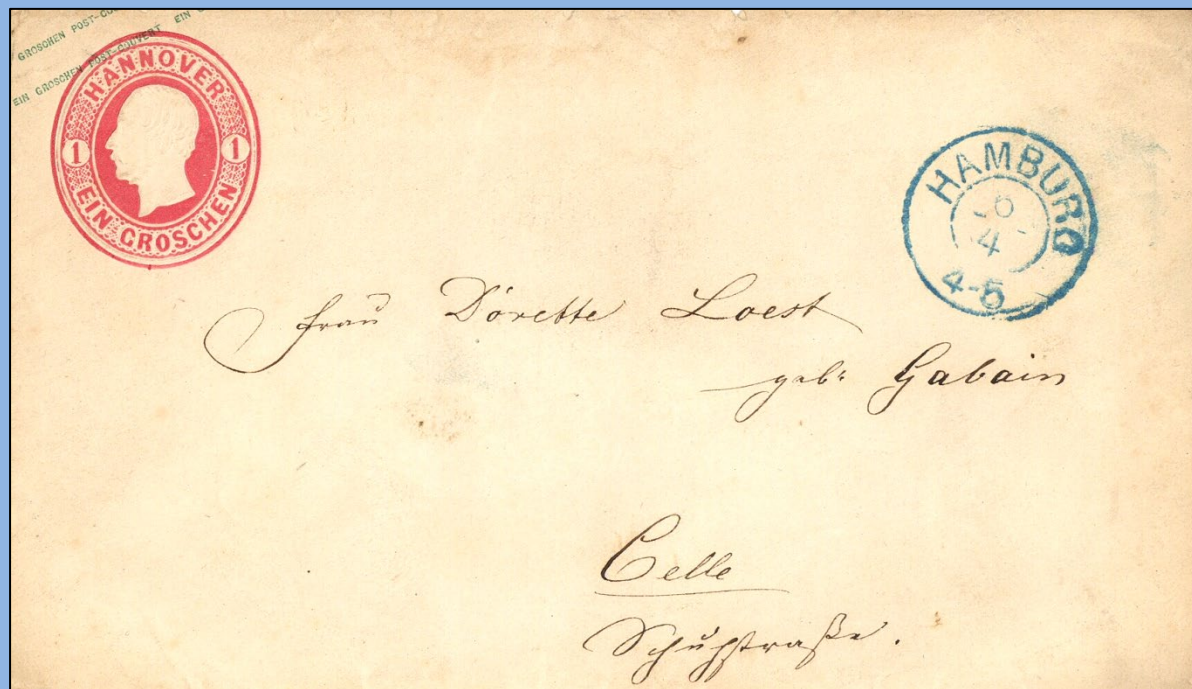 GROSCHEN POST-COUVERT EIN
EIN GROSCHEN POST-COUVERT EIN G
HANNOVER
1 1
EIN GROSCHEN
HAMBURG
6
4
4-5
Frau Dorette Loest
geb. Gabain
Celle
Schuhstraße.